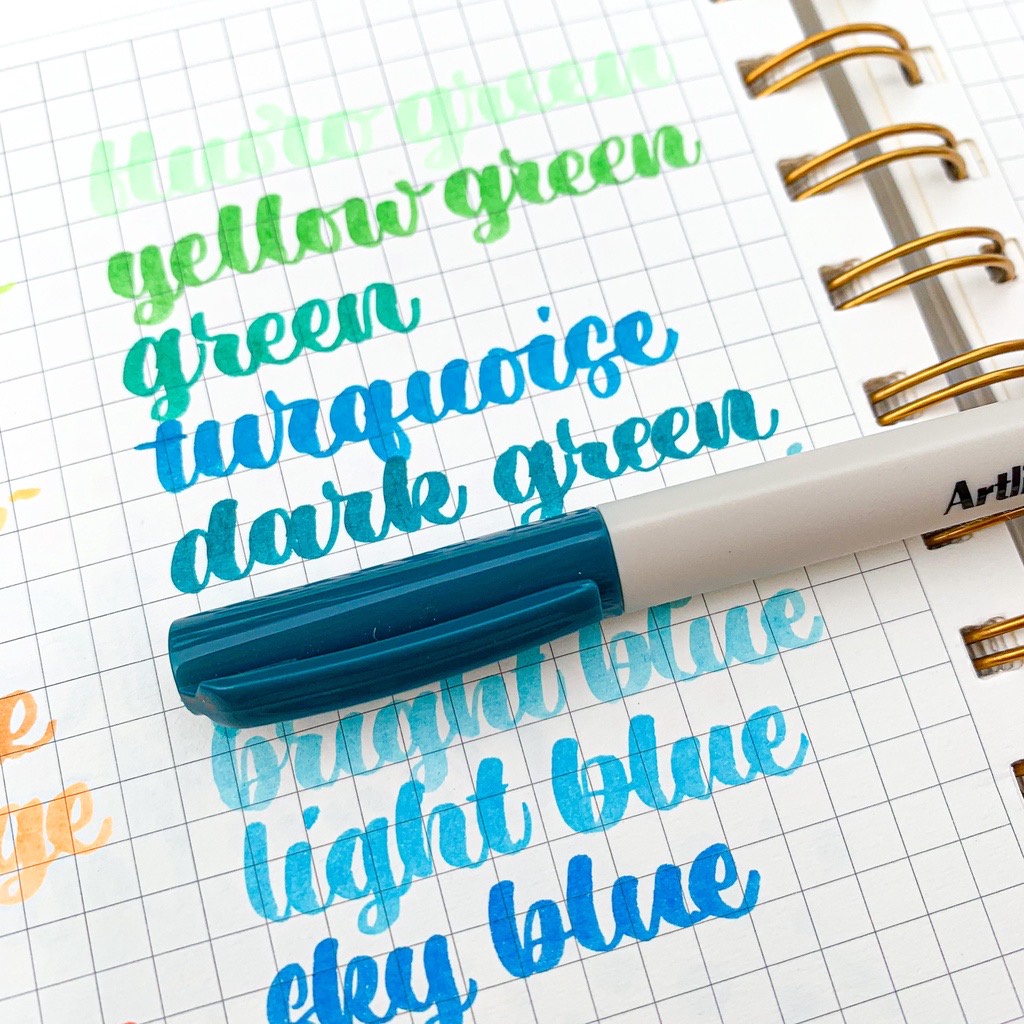 fluoro green
yellow green
green
turquoise
dark green
Artli
bright blue
light blue
sky blue
e
ge